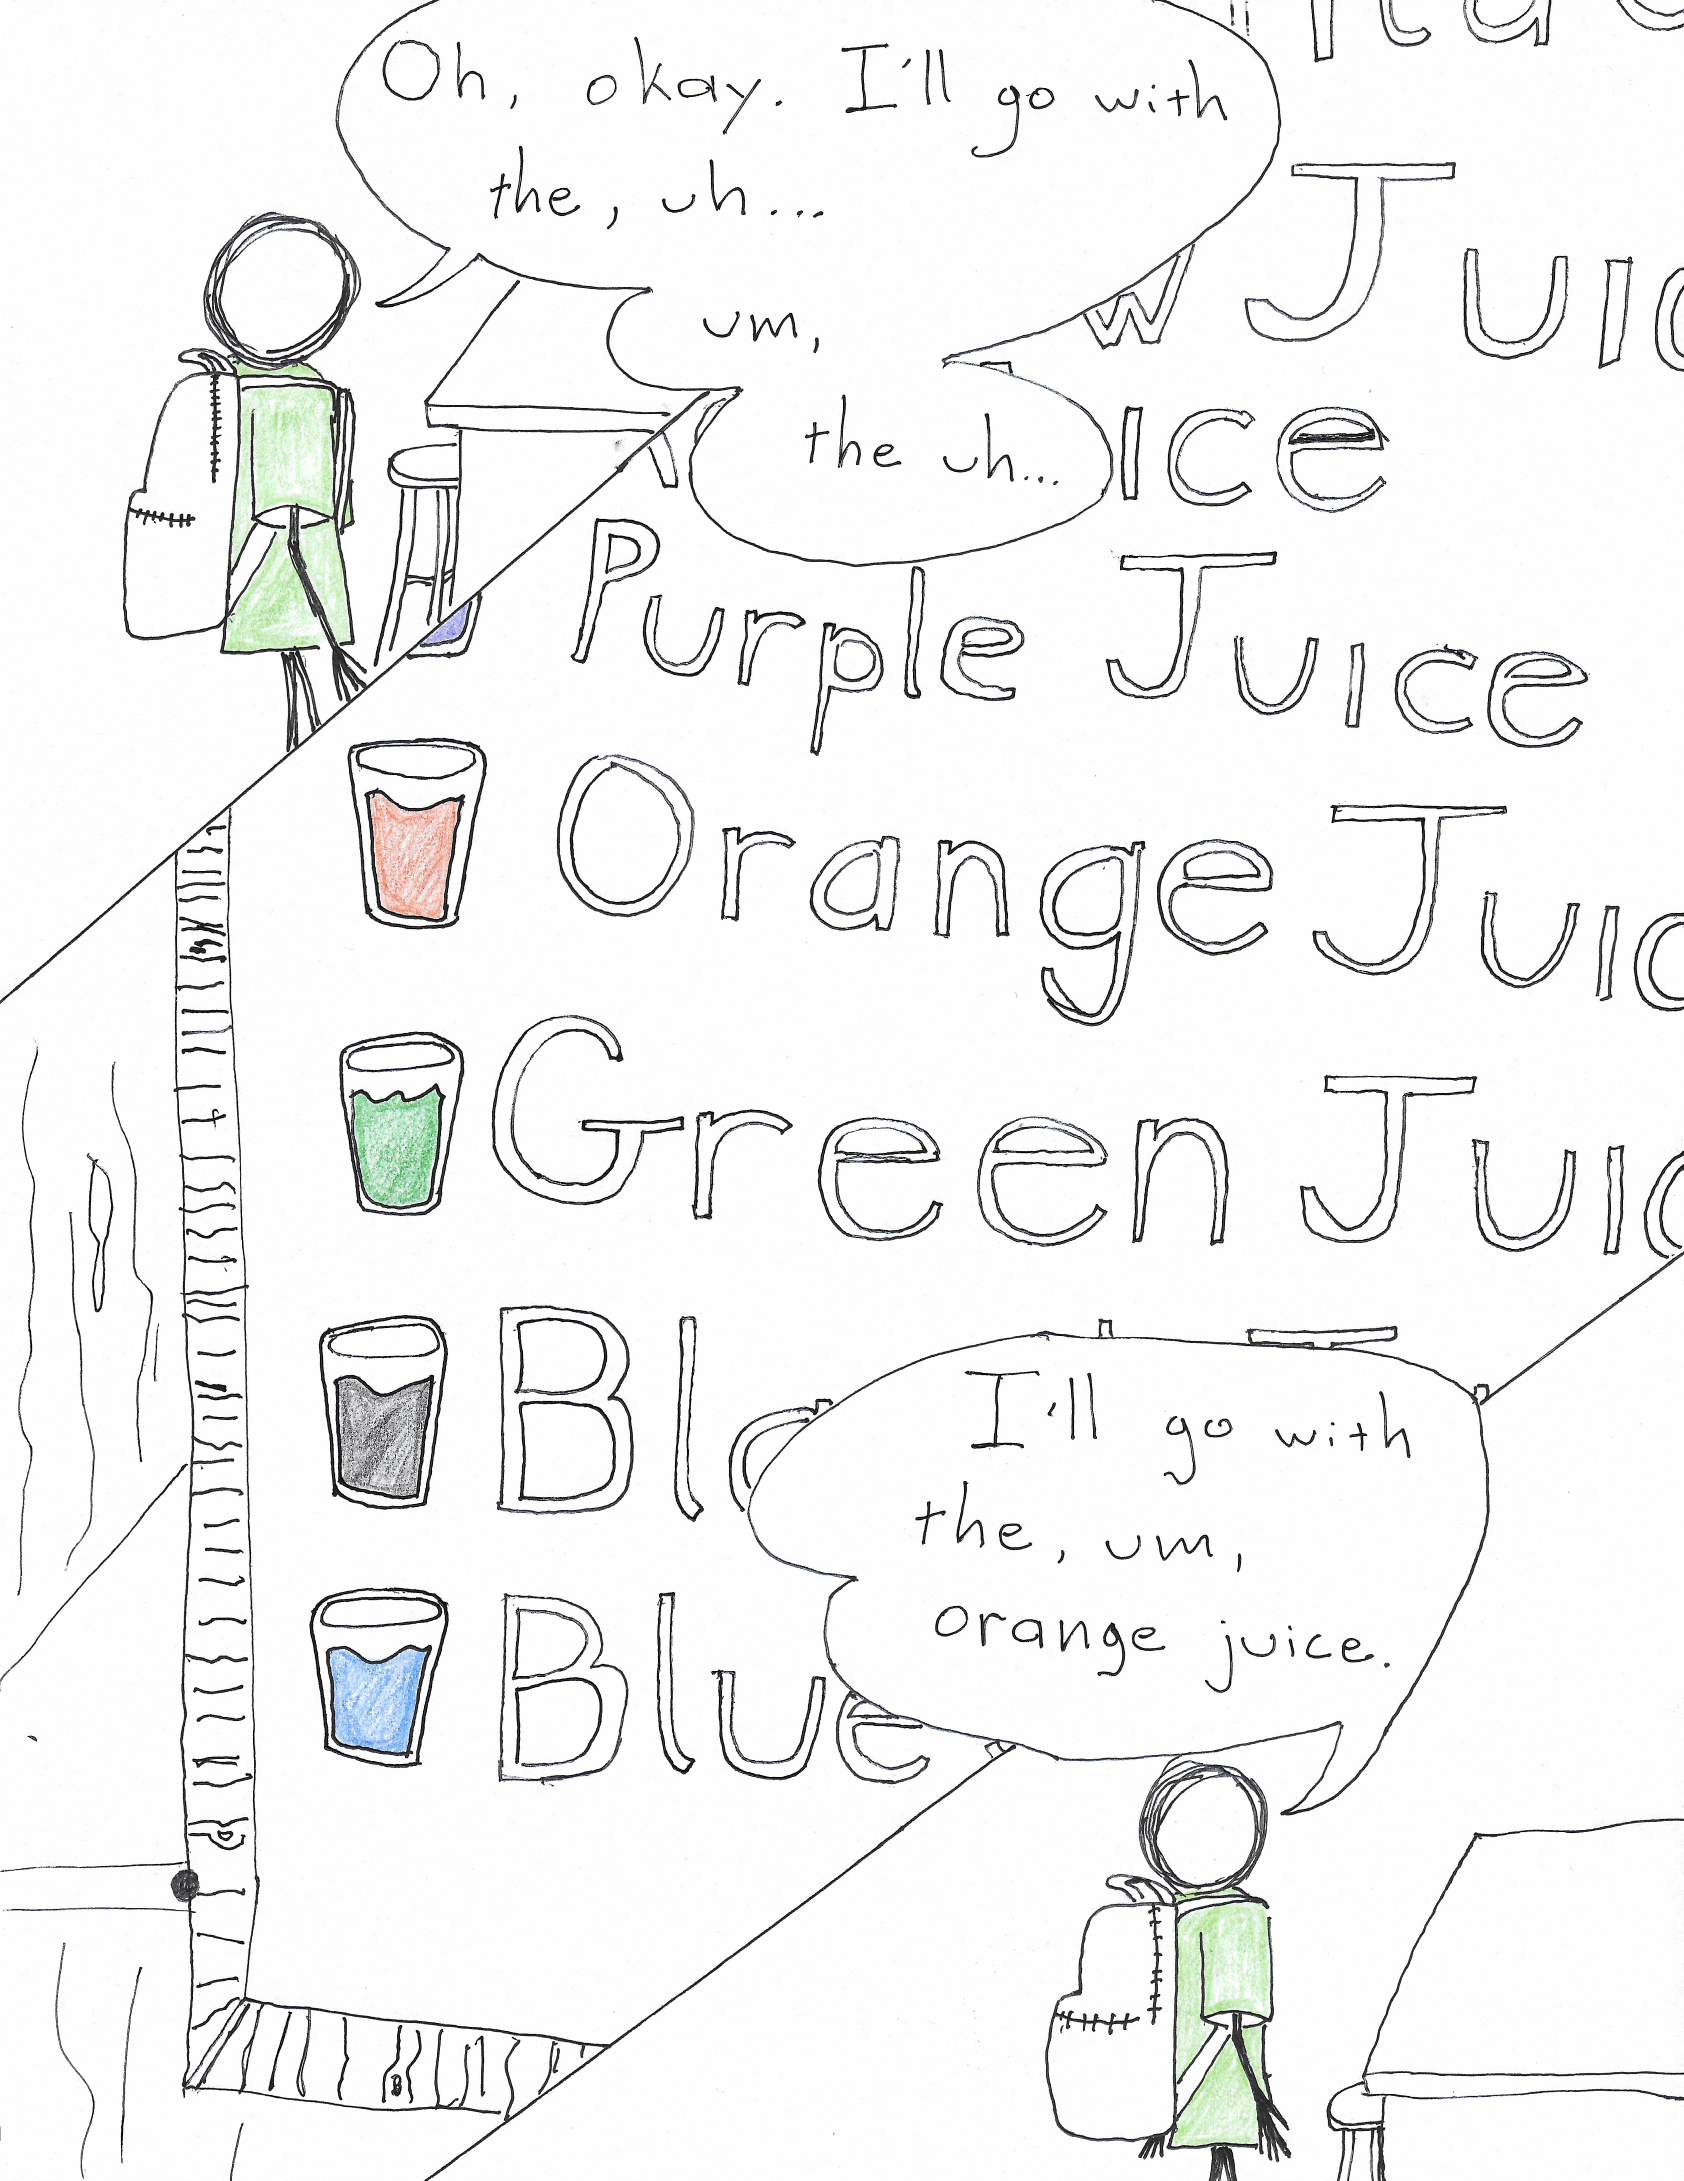 Oh, okay. I'll go with
the, uh...
um,
the uh...
Purple Juice
Orange Juic
Green Juic
Bl
Blue
I'll go with
the, um,
orange juice.